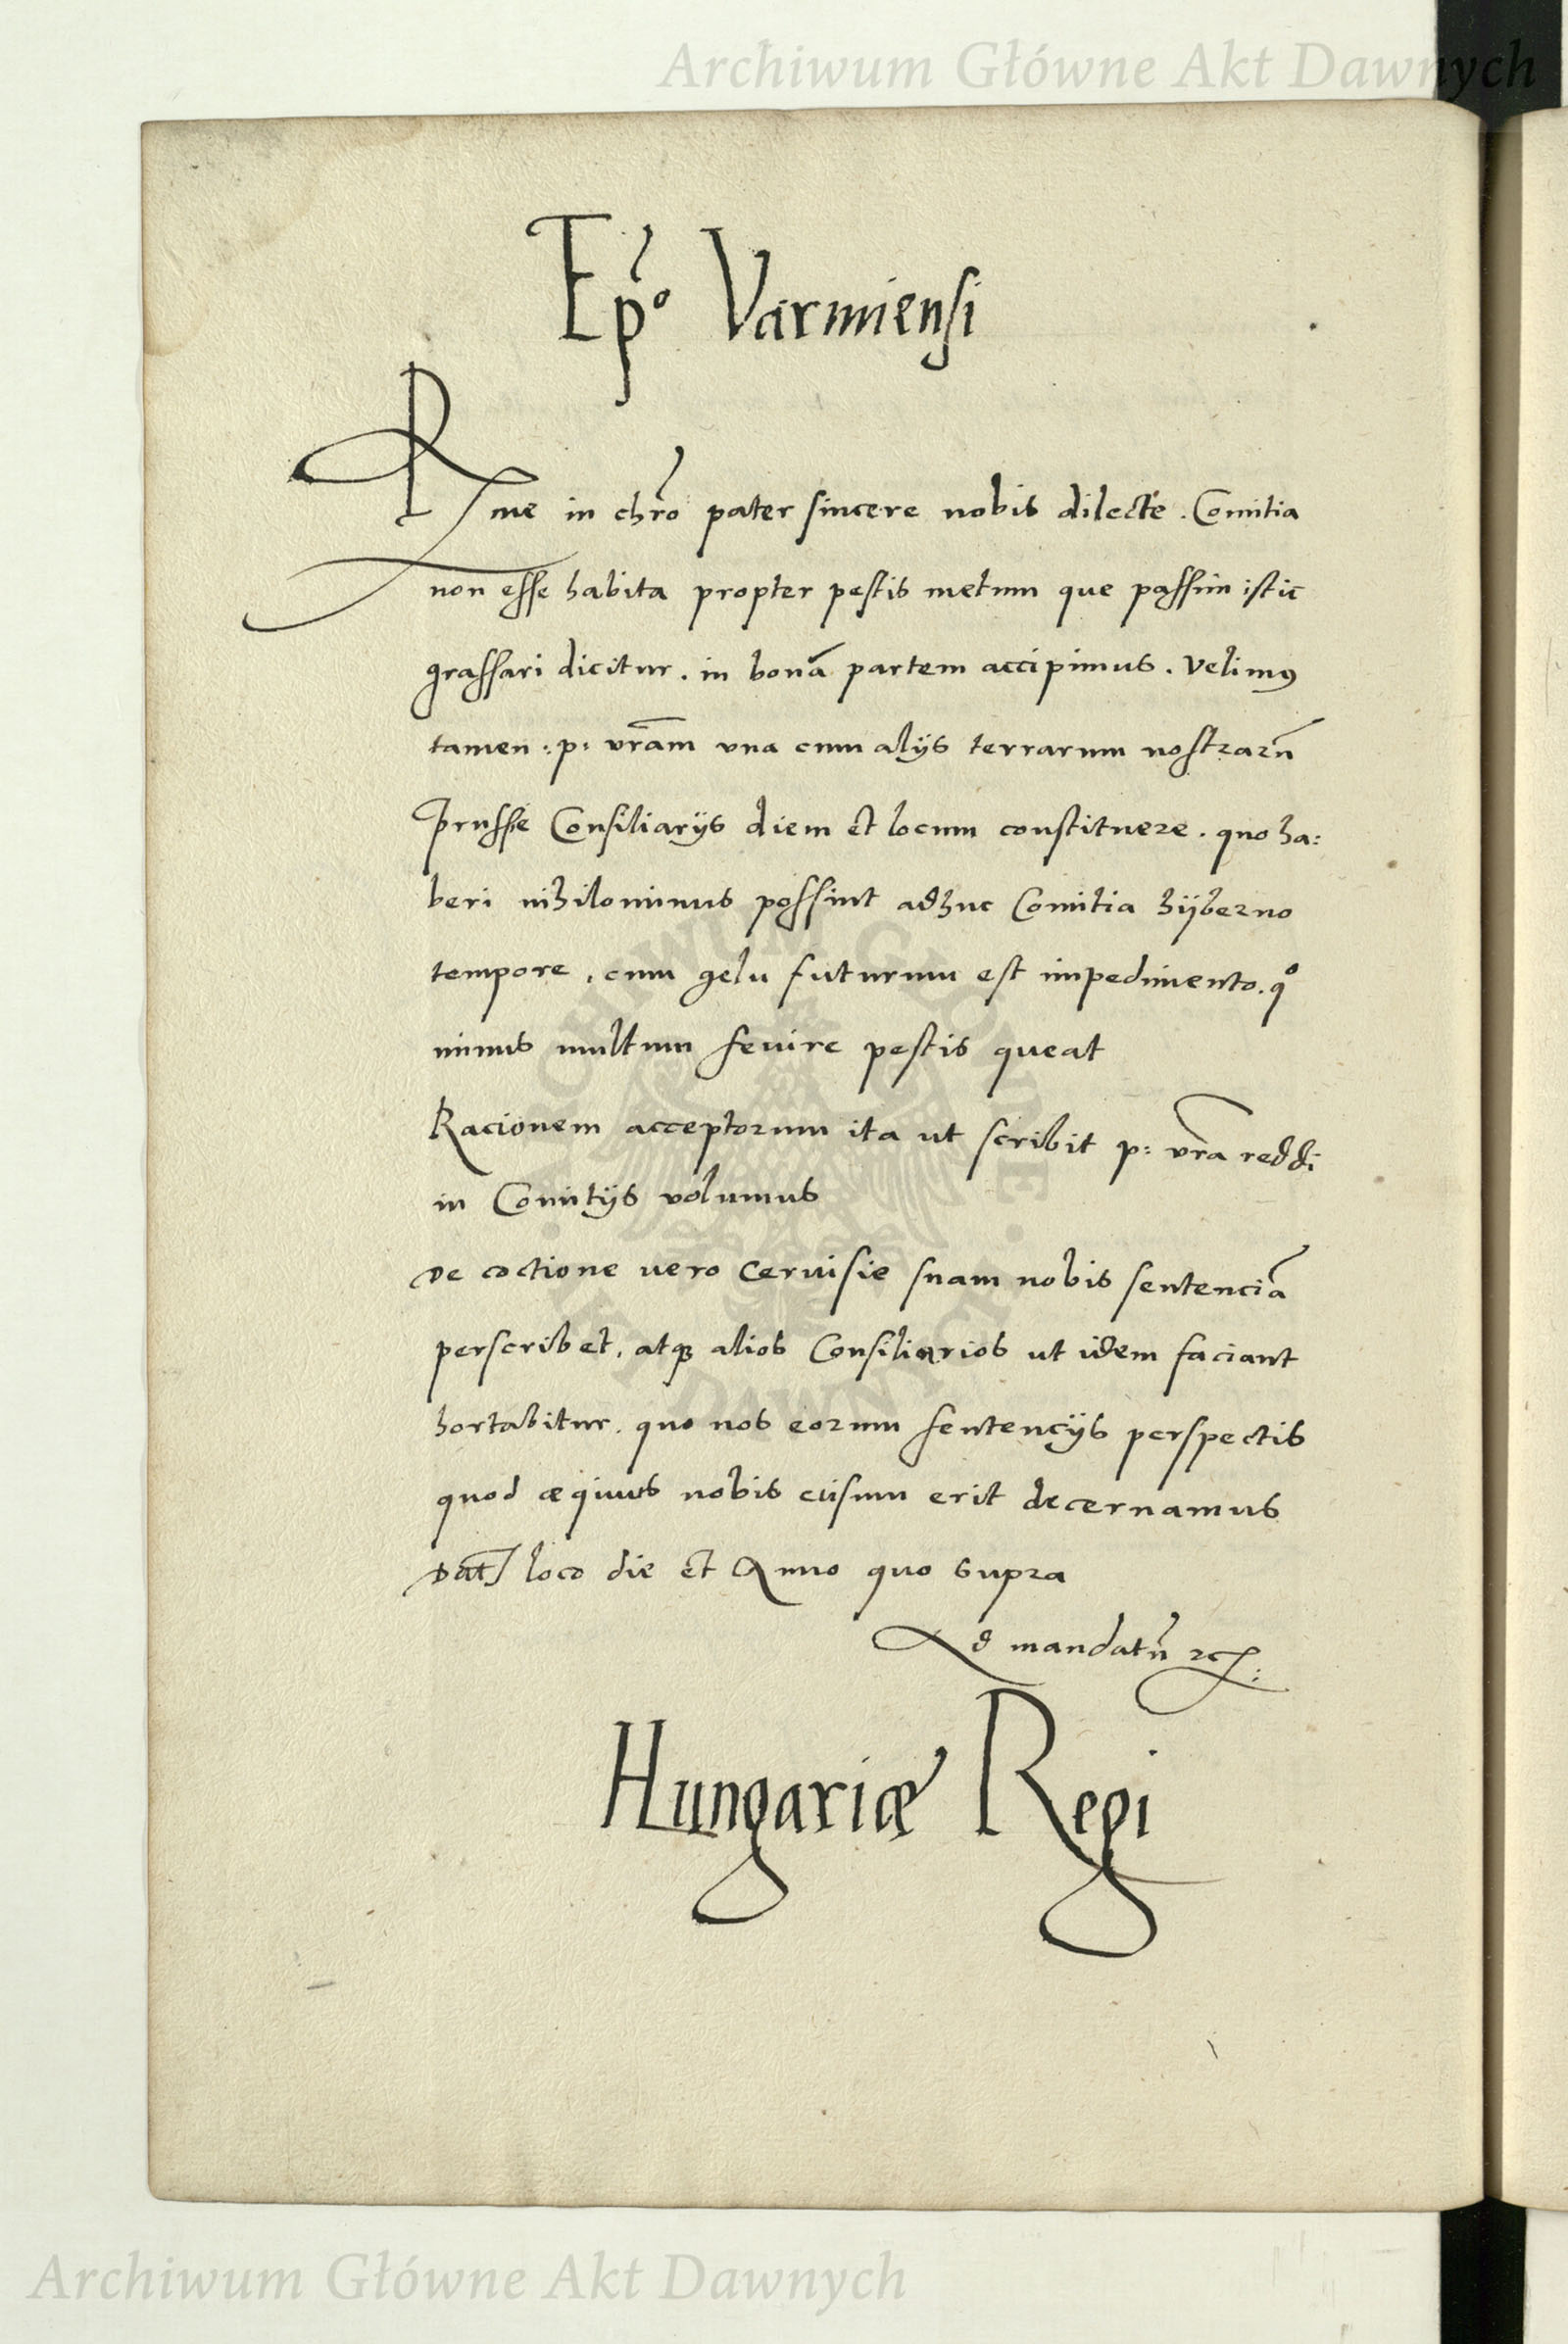 Archiwum Główne Akt Dawnych
Ep̃o Varmiensi
Rme in chr̃o pater sincere nobis dilecte. Comitia
non esse habita propter pestis metum que passim istic
grassari dicitur. in bonã partem accipimus. Velimꝰ
tamen :p: vr̃am vna cum alijs terrarum nostrarũ
Prusse Consiliarijs diem et locum constituere. quo ha:
beri nihilominus possint adhuc Comitia hijberno
tempore, cum gelu futurum est impedimento. qͦ
minus multum seuire pestis queat
Racionem acceptorum ita ut scribit p: vr̃a reddi
in Comitijs volumus
De coctione vero Ceruisie suam nobis sentenciã
perscribet, atqꝫ alios Consiliarios ut idem faciant
hortabitur. quo nos eorum sentencijs perspectis
quod æquius nobis uisum erit decernamus
Dat̃ loco die et Anno quo supra
Ad mandatũ ꝛc:
Hungariæ Regi
ARCHIWUM GŁÓWNE AKT DAWNYCH
Archiwum Główne Akt Dawnych